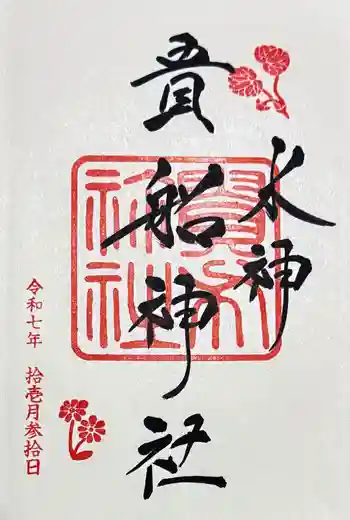 水神
貴船神社
貴船神社
令和七年 拾壱月参拾日